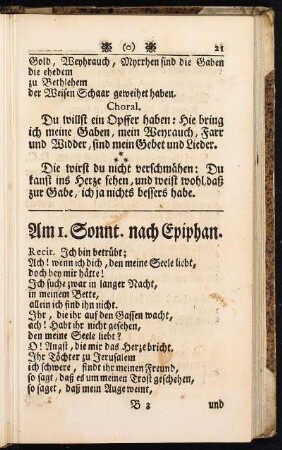 (o) 21
Gold, Weyhrauch, Myrrhen sind die Gaben
die ehedem
zu Bethlehem
der Weisen Schaar geweihet haben.
Choral.
Du willst ein Opffer haben: Hie bring
ich meine Gaben, mein Weyrauch, Farr
und Widder, sind mein Gebet und Lieder.
Die wirst du nicht verschmähen: Du
kanst ins Herze sehen, und weist wohl, daß
zur Gabe, ich ja nichts bessers habe.
Am 1. Sonnt. nach Epiphan.
Recit. Ich bin betrübt;
Ach! wenn ich dich, den meine Seele liebt,
doch bey mir hätte!
Ich suche zwar in langer Nacht,
in meinem Bette,
allein ich find ihn nicht.
Ihr, die ihr auf den Gassen wacht,
ach! Habt ihr nicht gesehen,
den meine Seele liebt?
O! Angst, die mir das Herze bricht.
Ihr Töchter zu Jerusalem
ich schwere, findt ihr meinen Freund,
so sagt, daß es um meinen Trost geschehen,
so saget, daß mein Auge weint,
B 3 und